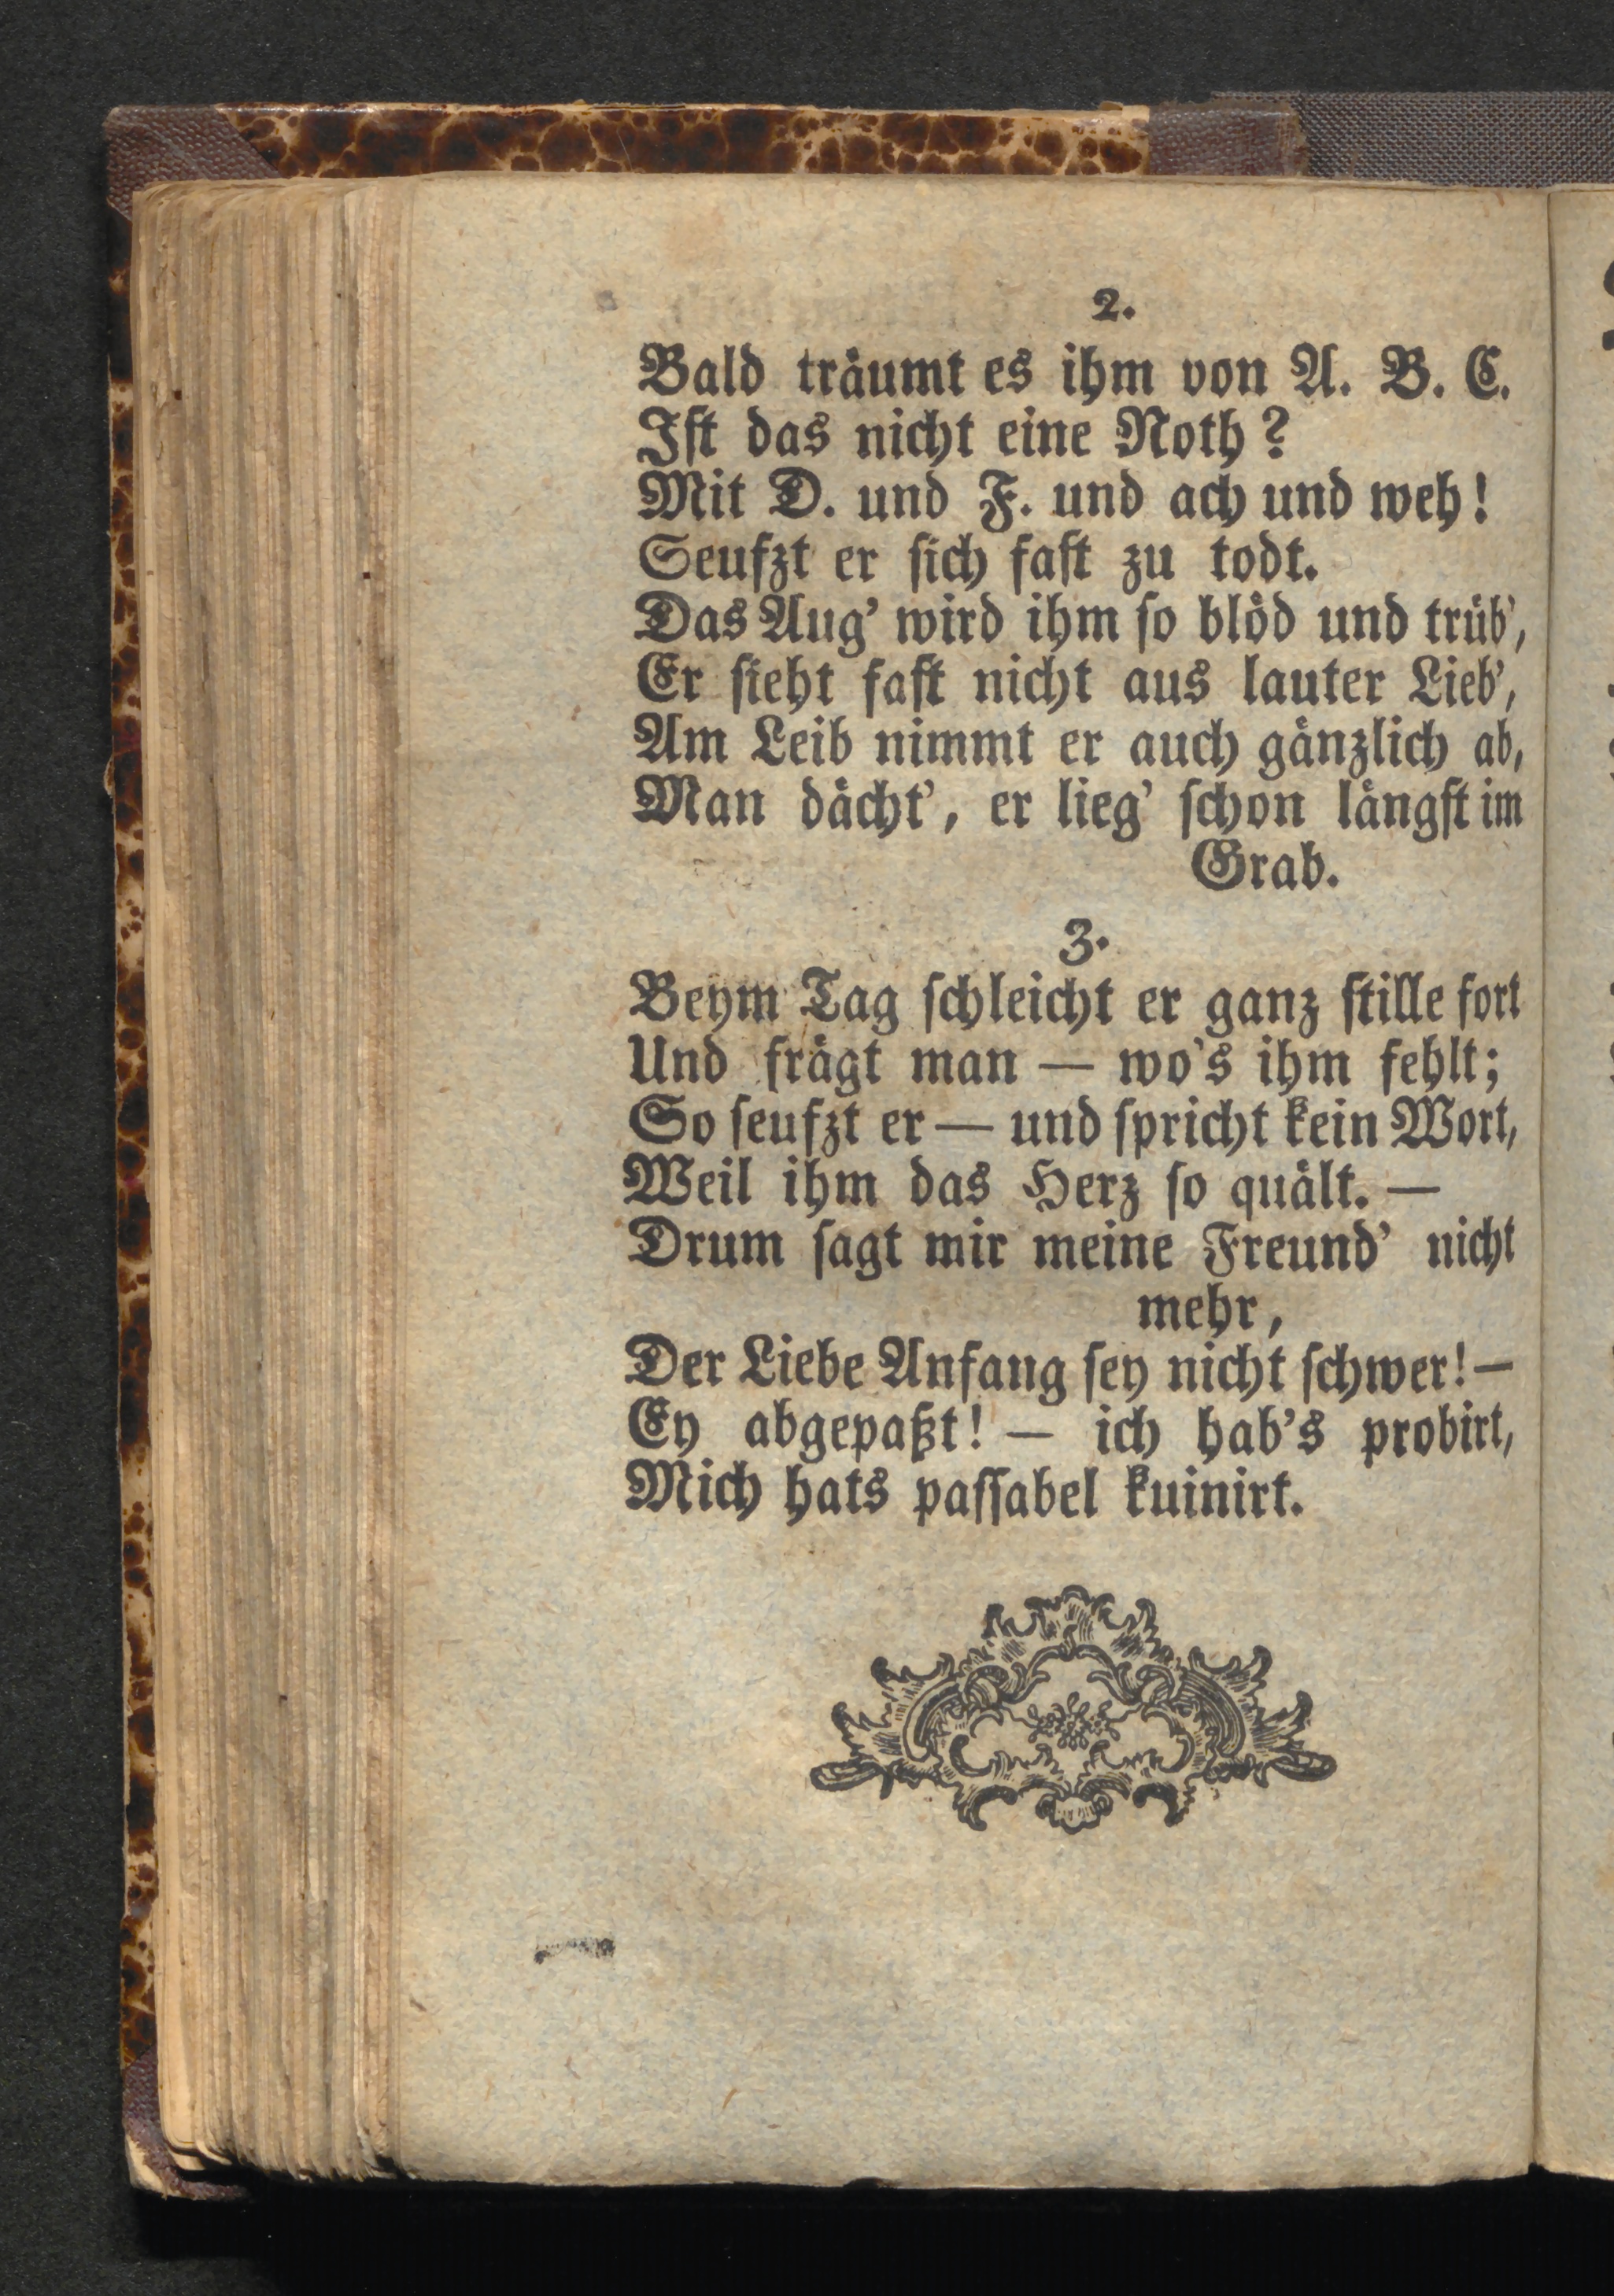 2.
Bald träumt es ihm von A. B. C.
Iſt das nicht eine Noth?
Mit D. und F. und ach und weh!
Seufzt er ſich faſt zu todt.
Das Aug' wird ihm ſo blöd und trüb',
Er ſieht faſt nicht aus lauter Lieb',
Am Leib nimmt er auch gänzlich ab,
Man dächt', er lieg' ſchon längſt im
Grab.
3.
Beym Tag ſchleicht er ganz ſtille fort
Und frägt man — wo's ihm fehlt;
So ſeufzt er — und ſpricht kein Wort,
Weil ihm das Herz ſo quält. —
Drum ſagt mir meine Freund' nicht
mehr,
Der Liebe Anfang ſey nicht ſchwer! —
Ey abgepaßt! — ich hab's probirt,
Mich hats paſſabel kuinirt.